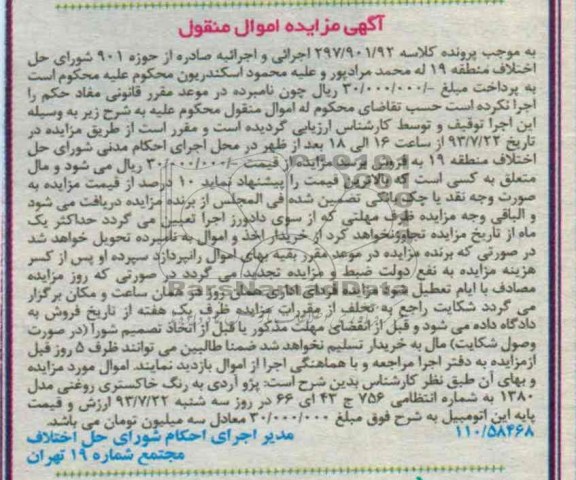 آگهی مزایده اموال منقول
به موجب پرونده کلاسه ۲۹۷/۹۰۱/۹۲ اجرائی و اجرائیه صادره از حوزه ۹۰۱ شورای حل
اختلاف منطقه ۱۹ له محمد مرادپور و علیه محمود اسکندریون محکوم علیه محکوم است
به پرداخت مبلغ -/۳۰/۰۰۰/۰۰۰ ریال چون نامبرده در موعد مقرر قانونی مفاد حکم را
اجرا نکرده است حسب تقاضای محکوم له اموال منقول محکوم علیه به شرح زیر به وسیله
این اجرا توقیف و توسط کارشناس ارزیابی گردیده است و مقرر است از طریق مزایده در
تاریخ ۹۳/۷/۲۲ از ساعت ۱۶ الی ۱۸ بعد از ظهر در محل اجرای احکام مدنی شورای حل
اختلاف منطقه ۱۹ به فروش برسد مزایده از قیمت -/۳۰/۰۰۰/۰۰۰ ریال می شود و مال
متعلق به کسی است که بالاترین قیمت را پیشنهاد نماید ۱۰ درصد از قیمت مزایده به
صورت وجه نقد یا چک بانکی تضمین شده فی المجلس از برنده مزایده دریافت می شود
و الباقی وجه مزایده ظرف مهلتی که از سوی دادورز اجرا تعیین می گردد حداکثر یک
ماه از تاریخ مزایده تجاوز نخواهد کرد از خریدار اخذ و اموال به نامبرده تحویل خواهد شد
در صورتی که برنده مزایده در موعد مقرر بقیه بهای اموال رانپردازد سپرده او پس از کسر
هزینه مزایده به نفع دولت ضبط و مزایده تجدید می گردد در صورتی که روز مزایده
مصادف با ایام تعطیل شود مزایده فردای اداری همان روز در همان ساعت و مکان برگزار
می گردد شکایت راجع به تخلف از مقررات مزایده ظرف یک هفته از تاریخ فروش به
دادگاه داده می شود و قبل از انقضای مهلت مذکور یا قبل از اتخاذ تصمیم شورا (در صورت
وصول شکایت) مال به خریدار تسلیم نخواهد شد ضمنا طالبین می توانند ظرف ۵ روز قبل
ازمزایده به دفتر اجرا مراجعه و با هماهنگی اجرا از اموال بازدید نمایند. اموال مورد مزایده
و بهای آن طبق نظر کارشناس بدین شرح است: پژو آردی به رنگ خاکستری روغنی مدل
۱۳۸۰ به شماره انتظامی ۷۵۶ ج ۴۲ ای ۶۶ در روز سه شنبه ۹۳/۷/۲۲ ارزش و قیمت
پایه این اتومبیل به شرح فوق مبلغ ۳۰/۰۰۰/۰۰۰ معادل سه میلیون تومان می باشد.
۱۱۰/۵۸۴۶۸ مدیر اجرای احکام شورای حل اختلاف
مجتمع شماره ۱۹ تهران